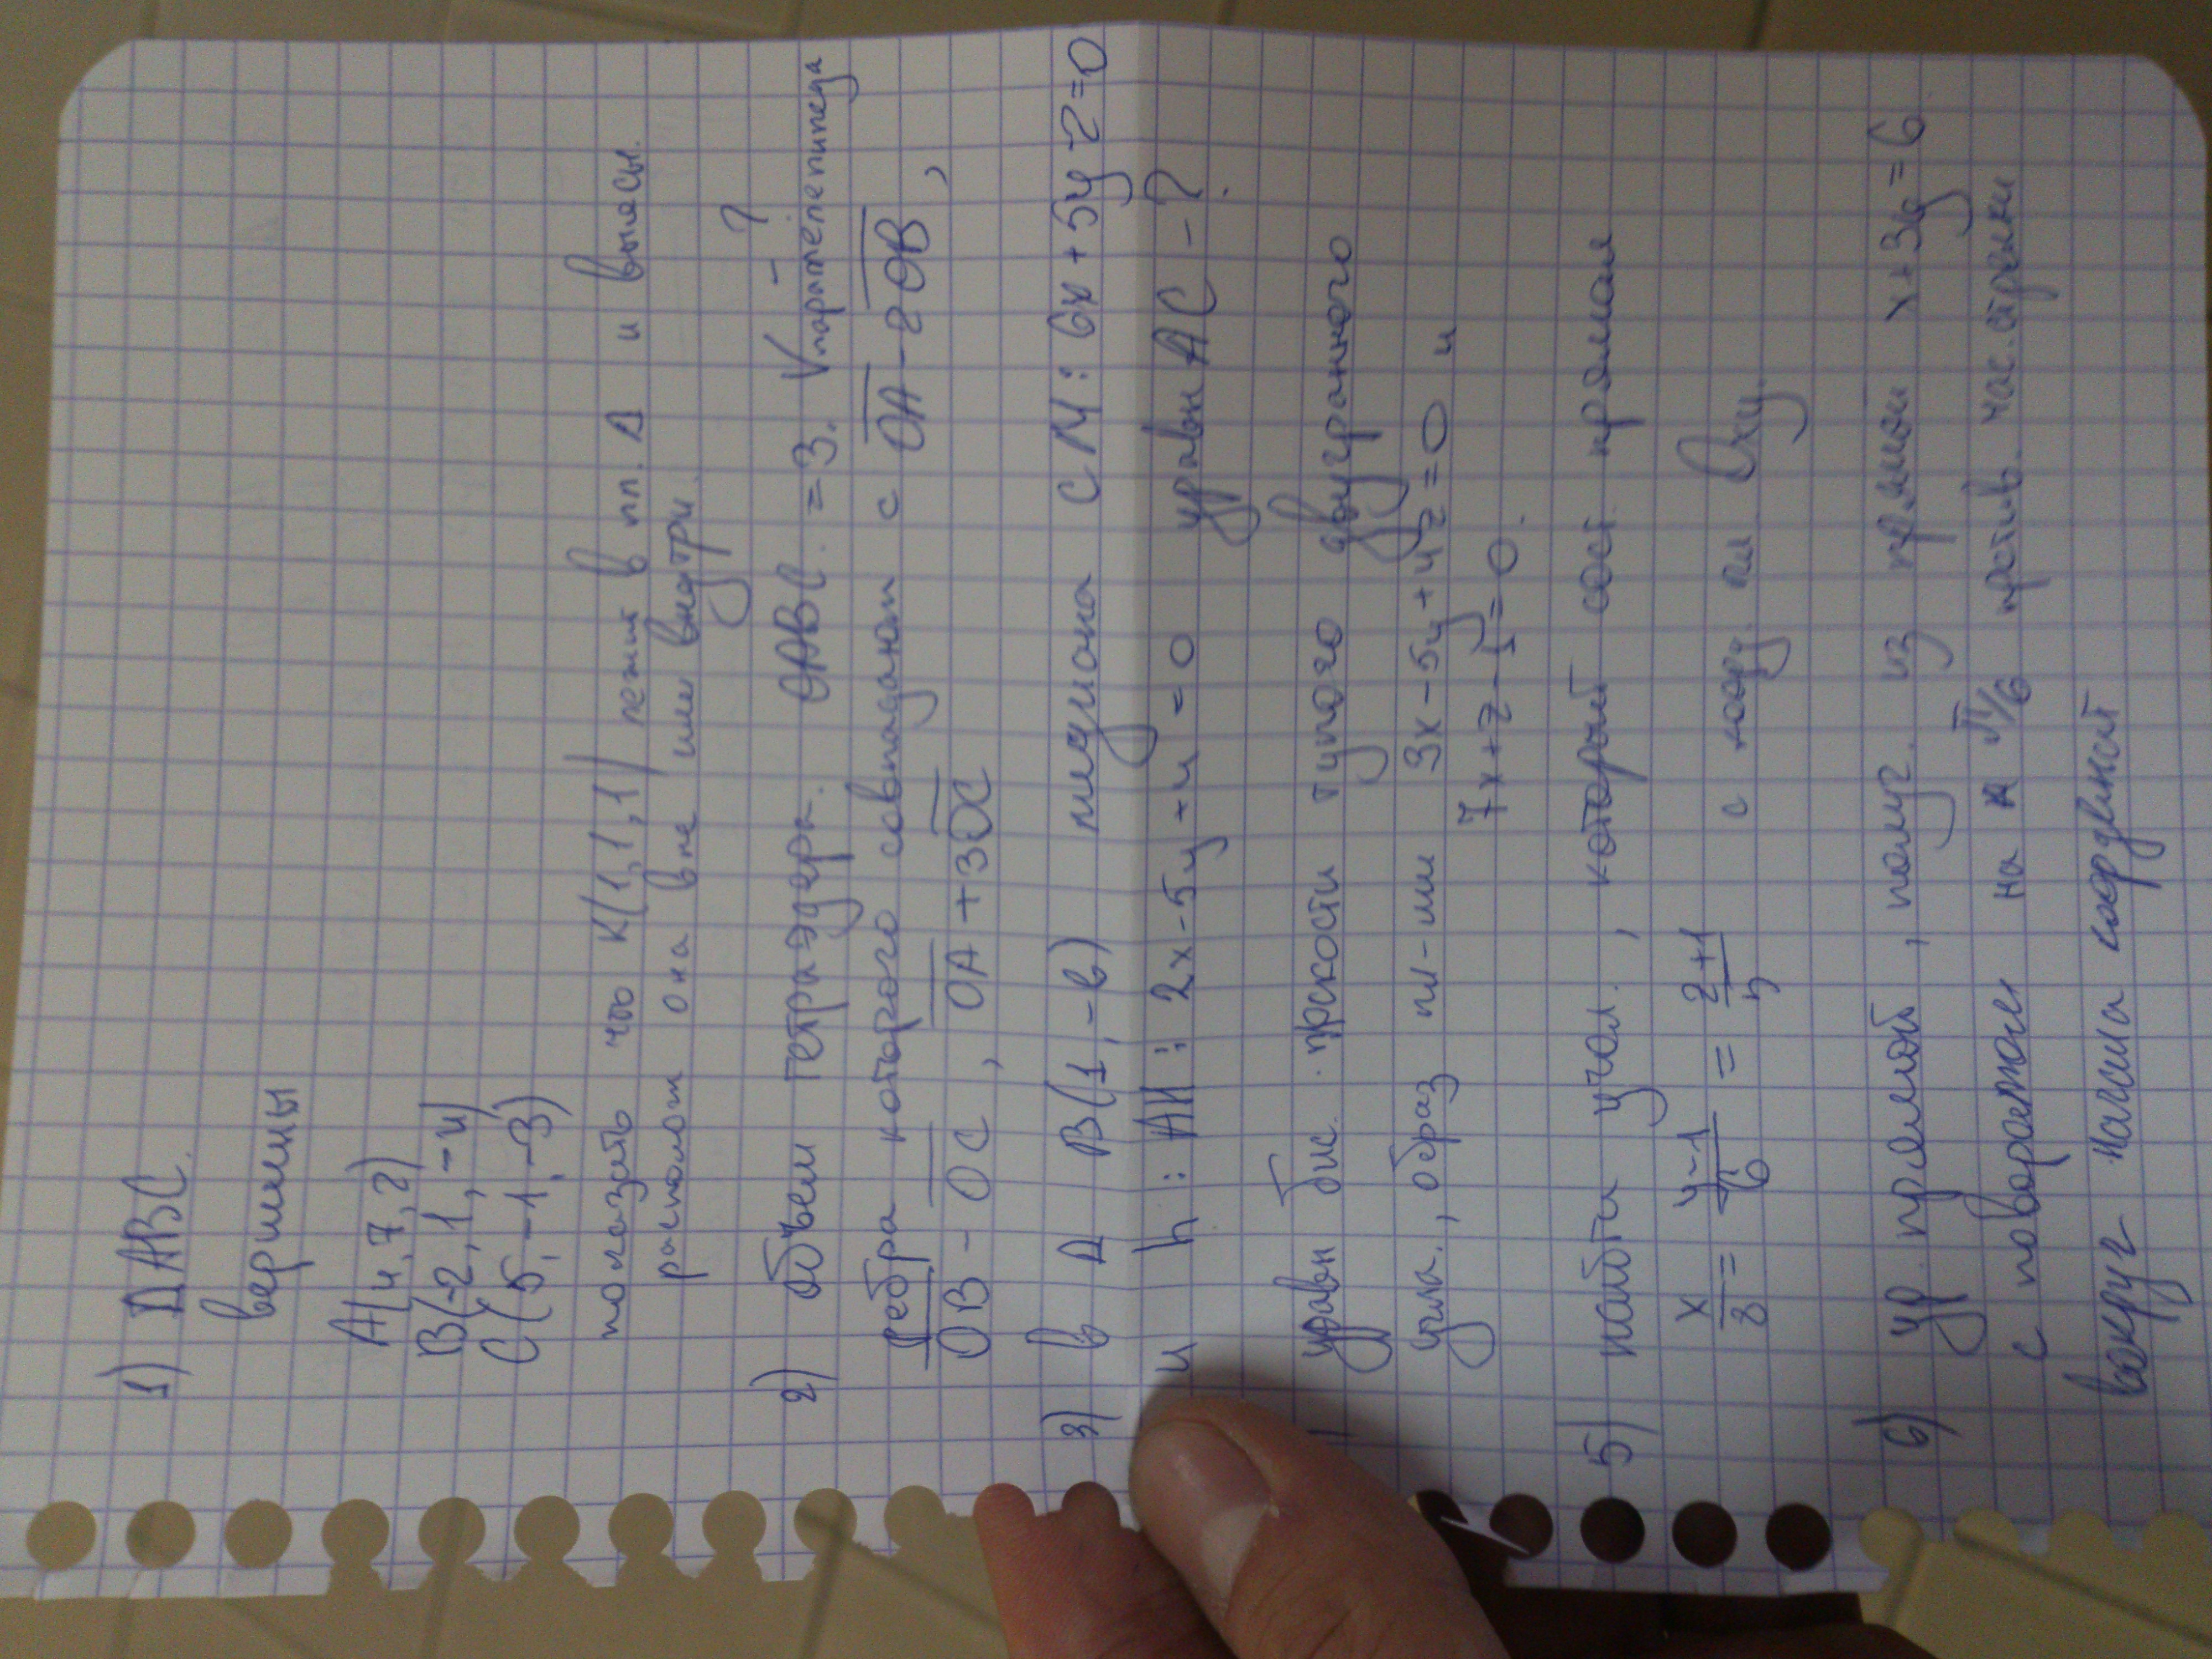 1) ΔABC.
вершины
A(4,7,2)
B(-2,1,-4)
C(5,-1,-3)
показать что K(1,1,1) лежит в пл. Δ и выясн.
располож она вне или внутри.
2) объем тетраэдра. OABC = 3. Vпараллелепипеда - ?
ребра которого совпадают с OA - 2OB,
OB - OC, OA + 3OC
3) в Δ B(1,-6) медиана CM: 6x + 5y
и h: AH: 2x - 5y - 4 = 0 уравн AC - ?
уравн бис. плоскости тупого двугранного
угла, образ пл-ми 3x - 5y + 4z = 0 и
7x + z - 5 = 0.
5) найти угол, который сост прямая
x/8 = (y-1)/6 = (z+1)/5 с коорд. пл. Oxy.
6) ур. прямой, получ. из прямой x + 3y = 6
с поворотом на π/6 против. час. стрелки
вокруг начала координат